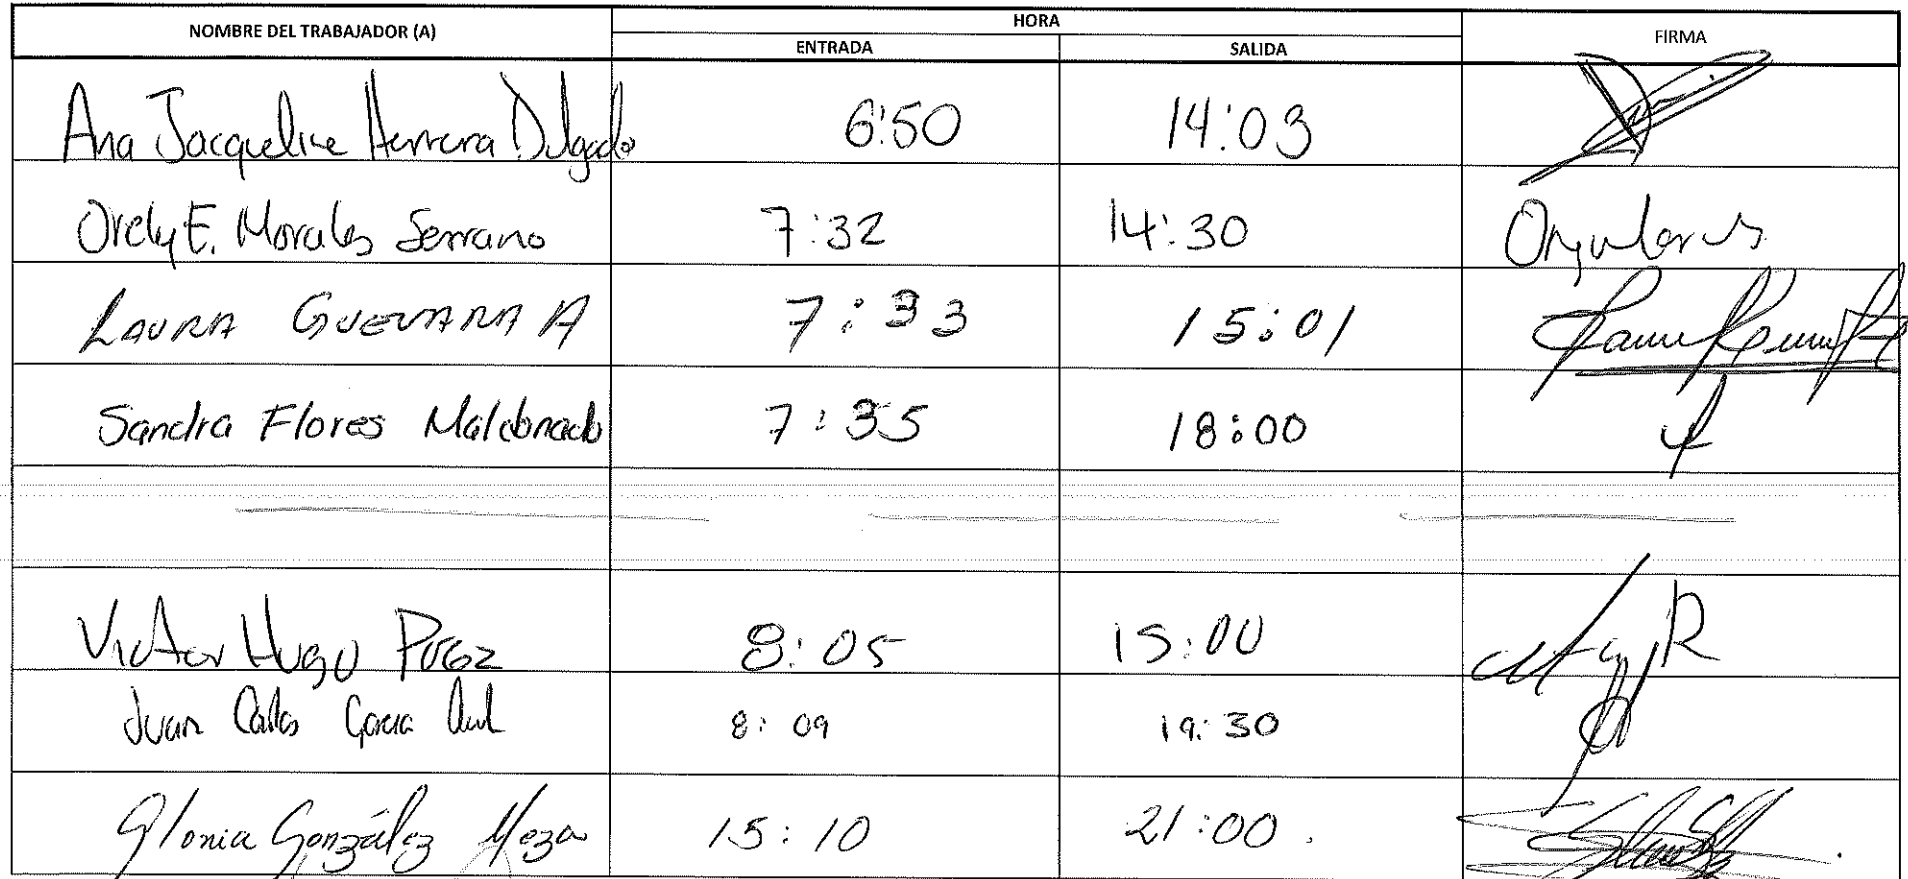 NOMBRE DEL TRABAJADOR (A) HORA FIRMA
ENTRADA SALIDA
Ana Jacqueline Herrera Delgado 6:50 14:03
Orely E. Morales Serrano 7:32 14:30
LAURA GUEVARA A 7:33 15:01
Sandra Flores Maldonado 7:35 18:00
Victor Hugo 8:05 15:00
Juan Carlos Garcia 8:09 19:30
Gloria González Meza 15:10 21:00.